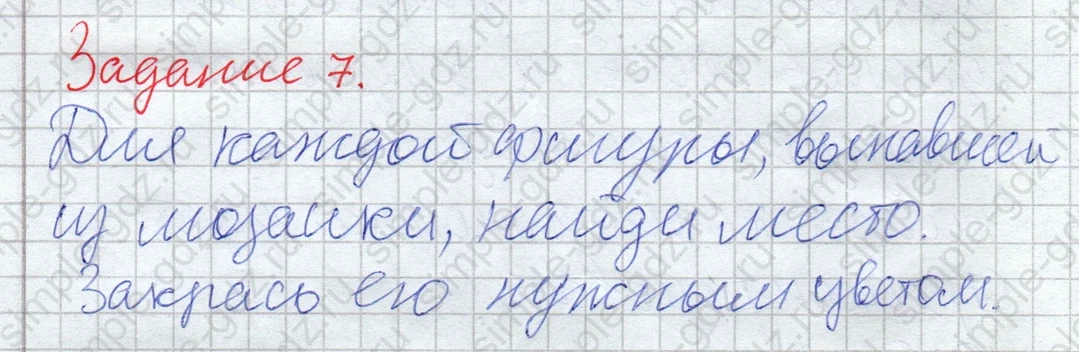 Задание 7.
Для каждой фигуры, выпавшей
из мозаики, найди место.
Закрась его нужным цветом.